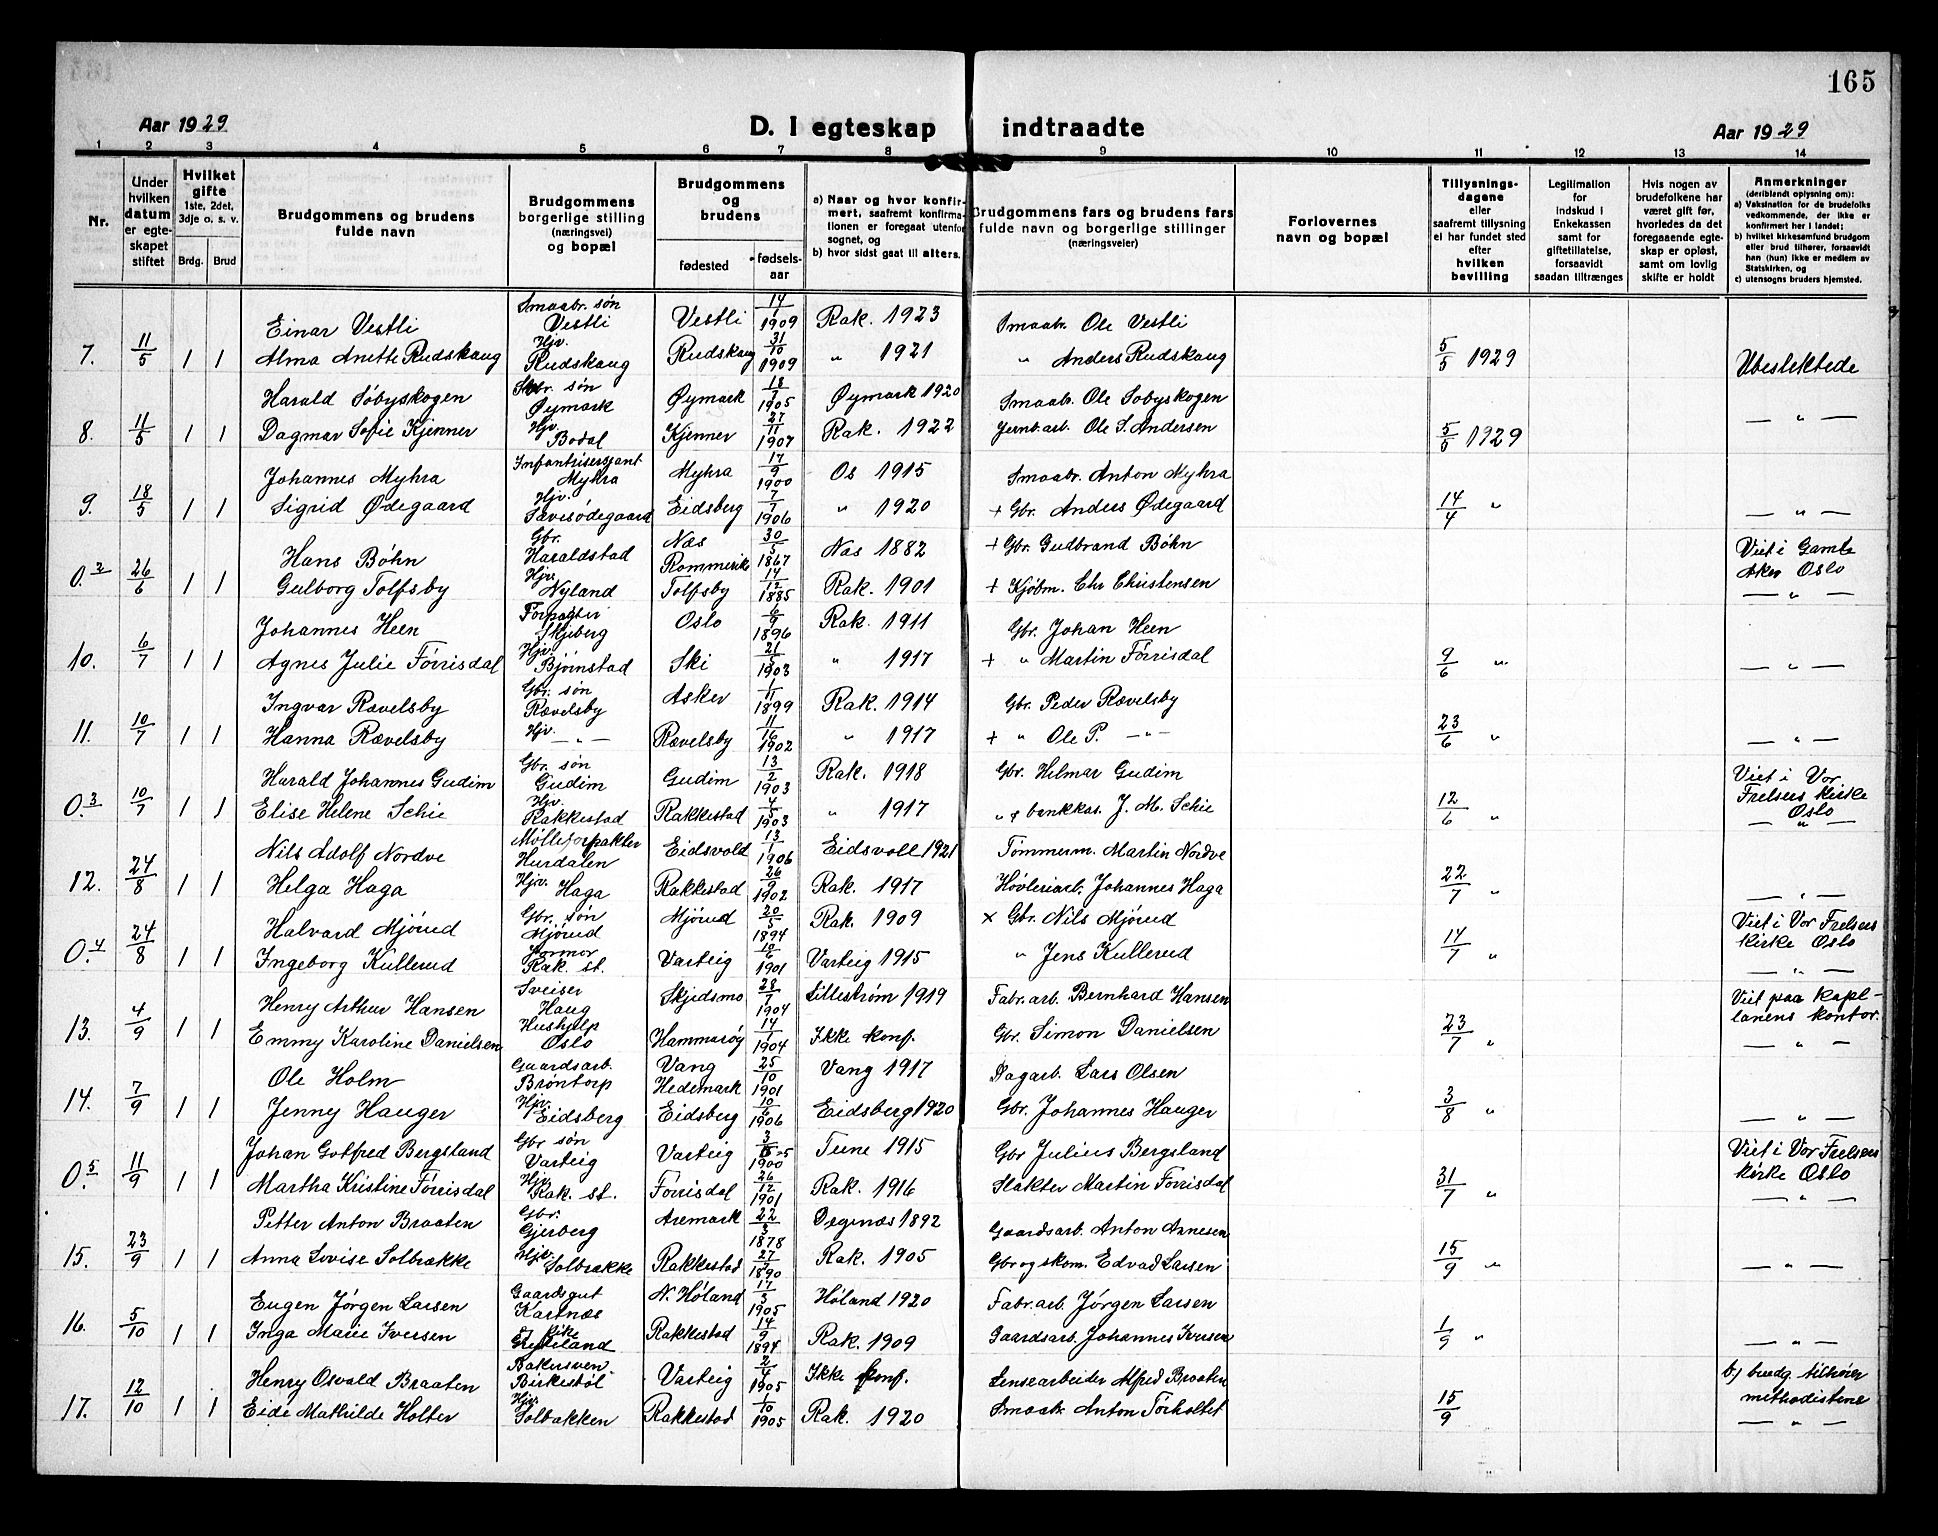 165
Aar 1929 D. I egteskap indtraadte Aar 1929
1 2 3 4 5 6 7 8 9 10 11 12 13 14
Nr.
Under hvilken datum er egteskapet stiftet
Hvilket gifte 1ste, 2det, 3dje o. s. v.
Brdg. Brud
Brudgommens og brudens fulde navn
Brudgommens borgerlige stilling (næringsvei) og bopæl
Brudgommens og brudens
fødested fødsels-aar
a) Naar og hvor konfirmert, saafremt konfirmationen er foregaat utenfor sognet, og
b) hvor sidst gaat til alters.
Brudgommens fars og brudens fars fulde navn og borgerlige stillinger (næringsveier)
Forlovernes navn og bopæl
Tillysningsdagene eller saafremt tillysning ei har fundet sted efter hvilken bevilling
Legitimation for indskud i Enkekassen samt for giftetillatelse, forsaavidt saadan tiltrænges
Hvis nogen av brudefolkene har været gift før, hvorledes da det foregaaende egteskap er opløst, samt om lovlig skifte er holdt
Anmerkninger (deriblandt oplysning om):
a) Vaksination for de brudefolks vedkommende, der ikke er konfirmert her i landet;
b) hvilket kirkesamfund brudgom eller brud tilhører, forsaavidt han (hun) ikke er medlem av Statskirken, og
c) utensogns bruders hjemsted.
Einar Vestli Smaabr. søn Vestli Vestli 14/1 1909 Rak. 1923 Smaabr. Ole Vestli
7. 11/5 1 1 Alma Anette Rudskaug Hjv. Rudskaug Rudskaug 31/10 1909 " 1921 " Anders Rudskaug 5/5 1929 Ubeslektede
Harald Søbyskogen Smbr. søn Øymark Øymark 18/1 1905 Øymark 1920 Smaabr. Ole Søbyskogen
8. 11/5 1 1 Dagmar Sofie Kjenner Hjv. Bodal Kjenner 27/11 1907 Rak. 1922 Jernb.arb. Ole S. Andersen 5/5 1929 — " —
Johannes Myhra Infantrisersjant Myhra Myhra 17/9 1900 Os 1915 Smaabr. Anton Myhra
9. 18/5 1 1 Sigrid Ødegaard Hjv. Sævesødegaard Eidsberg 7/7 1906 " 1920 + Gbr. Anders Ødegaard 14/4 " — " —
Hans Bøhn Gbr. Haraldstad Næs Rommerike 30/5 1867 Næs 1882 + Gbr. Gudbrand Bøhn Viet i Gamle
0.2 26/6 1 1 Gulborg Tolfsby Hjv. Nyland Tolfsby 14/12 1885 Rak. 1901 + Kjøbm. Chr Christensen Aker Oslo — " —
Johannes Heen Forpagter Skjeberg Oslo 6/9 1896 Rak. 1911 Gbr. Johan Heen
10. 6/7 1 1 Agnes Julie Førrisdal Hjv. Bjørnstad Ski 21/5 1903 " 1917 + " Martin Førrisdal 9/6 " — " —
Ingvar Rævelsby Gbr. søn Rævelsby Asker 1/11 1899 Rak. 1914 Gbr. Peder Rævelsby
11. 10/7 1 1 Hanna Rævelsby Hjv. — " — Rævelsby 11/16 1902 " 1917 + " Ole P. — " — 23/6 " — " —
Harald Johannes Gudim Gbr. søn Gudim Gudim 13/2 1903 Rak. 1918 Gbr. Hilmar Gudim Viet i Vor
0.3 10/7 1 1 Elise Helene Schie Hjv. Rakkestad Rakkestad 4/5 1903 " 1917 " & bankkas. J. M. Schie 12/6 " Frelsers kirke Oslo — " —
Nils Adolf Nordve Mølleforpakter Hurdalen Eidsvold 13/1 1906 Eidsvoll 1921 Tømmerm. Martin Nordve
12. 24/8 1 1 Helga Haga Hjv. Haga Rakkestad 26/9 1902 Rak. 1917 Høvleriarb. Johannes Haga 22/7 " — " —
Halvard Mjørud Gbr. søn Mjørud Mjørud 20/5 1894 Rak. 1909 × Gbr. Nils Mjørud Viet i Vor Frelsers
0.4 24/8 1 1 Ingeborg Kullerud Jormor Rak. st. Varteig 10/6 1901 Varteig 1915 " Jens Kullerud 14/7 " kirke Oslo — " —
Henry Arthur Hansen Sveiser Haug Skjedsmo 28/7 1904 Lillestrøm 1919 Fabr.arb. Bernhard Hansen Viet paa kapel-
13. 4/9 1 1 Emmy Karoline Danielsen Hushjelp Oslo Hammarøy 14/1 1904 Ikke konf. Gbr. Simon Danielsen 23/7 " lanens kontor. — " —
Ole Holm Gaardsarb. Brøntorp Vang Hedemark 25/10 1901 Vang 1917 Dagarb. Lars Olsen
14. 7/9 1 1 Jenny Hauger Hjv. Eidsberg Eidsberg 10/6 1906 Eidsberg 1920 Gbr. Johannes Hauger 3/8 " — " —
Johan Gotfred Bergsland Gbr søn Varteig Varteig 3/5 1900 Tune 1915 Gbr Julius Bergsland Viet i Vor Frelsers
0.5 11/9 1 1 Martha Kristine Førrisdal Hjv. Rak. st. Førrisdal 26/12 1901 Rak. 1916 Slakter Martin Førrisdal 31/7 " kirke Oslo — " —
Petter Anton Braaten Gbr. Gjerberg Aremark 22/3 1878 Degenæs 1892 Gaardsarb. Anton Arnesen
15. 23/9 1 1 Anna Lovise Solbrække Hjv. Solbrække Rakkestad 27/7 1890 Rak. 1905 Gbr og skom. Edvad Larsen 15/9 " — " —
Eugen Jørgen Larsen Gaardsgut Kartnæs N. Høland 17/3 1905 Høland 1920 Fabr.arb. Jørgen Larsen
16. 5/10 1 1 Inga Marie Iversen Gryteland Rakkestad 14/9 1894 Rak. 1909 Gaardsarb. Johannes Iversen 1/9 " — " —
Henry Osvald Braaten Bakersven Birkestøl Varteig 2/4 1905 Ikke konf. Lensearbeider Alfred Braaten b) brudg. tilhører
17. 12/10 1 1 Eide Mathilde Holter Hjv. Solbakken Rakkestad 1/10 1905 Rak. 1920 Smaabr. Anton Torholtet 15/9 methodistene — " —